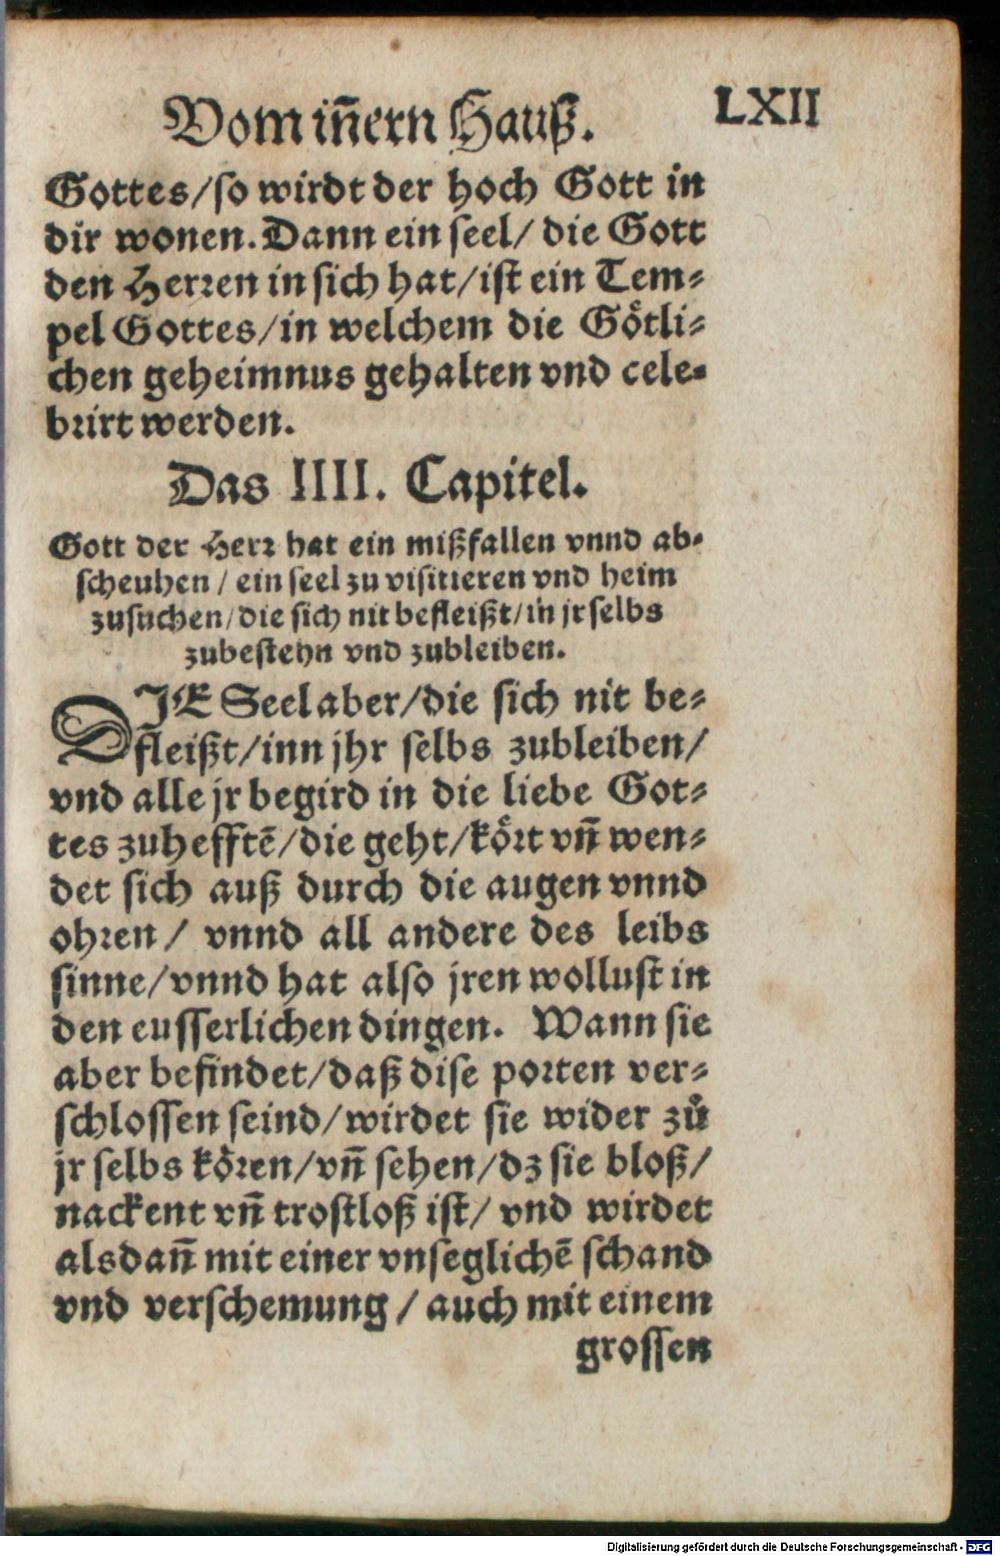 Vom iñern Hauß.
LXII
Gottes/so wirdt der hoch Gott in
dir wonen. Dann ein seel/ die Gott
den Herren in sich hat/ist ein Tem⸗
pel Gottes/in welchem die Götli⸗
chen geheimnus gehalten vnd cele⸗
brirt werden.
Das IIII. Capitel.
Gott der Herr hat ein mißfallen vnnd ab⸗
scheuhen / ein seel zu visitieren vnd heim
zusuchen/die sich nit befleißt/in jr selbs
zubestehn vnd zubleiben.
DIE Seel aber/die sich nit be⸗
fleißt/inn jhr selbs zubleiben/
vnd alle jr begird in die liebe Got⸗
tes zuhefftẽ/die geht/kört vñ wen⸗
det sich auß durch die augen vnnd
ohren / vnnd all andere des leibs
sinne/vnnd hat also jren wollust in
den eusserlichen dingen. Wann sie
aber befindet/daß dise porten ver⸗
schlossen seind/wirdet sie wider zů
jr selbs kören/vñ sehen/dz sie bloß/
nackent vñ trostloß ist/ vnd wirdet
alsdañ mit einer vnseglichẽ schand
vnd verschemung / auch mit einem
grossen
Digitalisierung gefördert durch die Deutsche Forschungsgemeinschaft - DFG